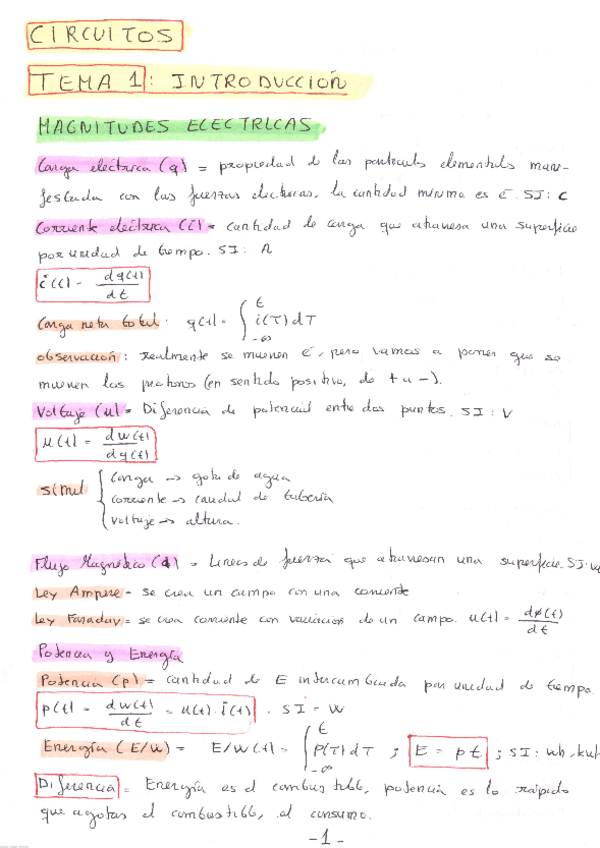 CIRCUITOS
TEMA 1: INTRODUCCIÓN
MAGNITUDES ELECTRICAS
Carga eléctrica (q) = propiedad de las particulas elementales mani-
festada con las fuerzas electricas, la cantidad minima es é. SI: C
Corriente eléctrica (i) = cantidad de carga que atraviesa una superficie
por unidad de tiempo. SI: A
i(t) = dq(t)/dt
Carga neta total: q(t) = ∫_{-∞}^{t} i(T) dT
observación: realmente se mueven é, pero vamos a poner que se
mueven los protones (en sentido positivo, de + a -).
Voltaje (u) = Diferencia de potencial entre dos puntos. SI: V
u(t) = dw(t)/dq(t)
simil { Carga → gota de agua
corriente → caudal de tubería
voltaje → altura.
Flujo Magnético (ϕ) = Lineas de fuerza que atraviesan una superficie. SI: W
Ley Ampere = se crea un campo con una corriente
Ley Faraday = se crea corriente con variación de un campo. u(t) = dϕ(t)/dt
Potencia y Energía
Potencia (p) = cantidad de E intercambiada por unidad de tiempo.
p(t) = dw(t)/dt = u(t) · i(t) . SI = W
Energía (E/w) = E/w(t) = ∫_{-∞}^{t} P(T) dT ; E = p t ; SI: wh, kwh
Diferencia = Energía es el combustible, potencia es lo rápido
que agotas el combustible, el consumo.
-1-